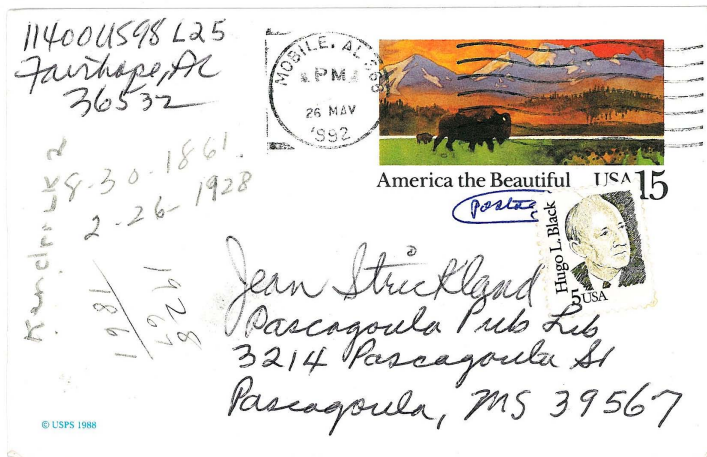 11400 US98 L25
Fairhope, AL
36532
MOBILE, AL 366
PM
26 MAY
1992
America the Beautiful USA 15
Postag
Hugo L. Black
5 USA
8-30-1861
2-26-1928
1928
67
1981
Jean Strickland
Pascagoula Pub Lib
3214 Pascagoula St
Pascagoula, MS 39567
© USPS 1988